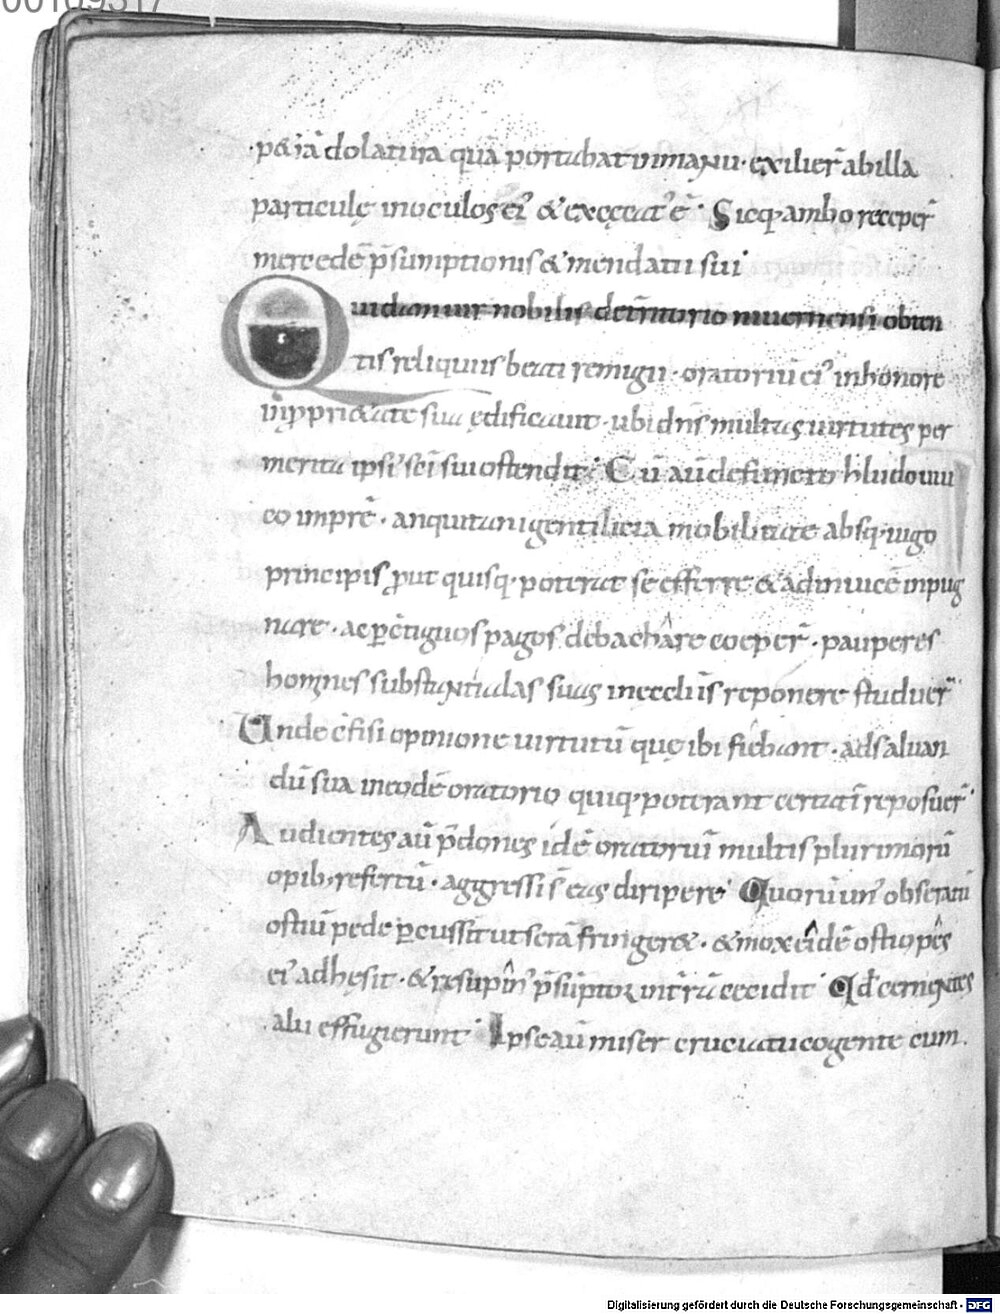 00109317
p&iā dolatura quā portabat in manu· exilier̄ ab illa
particulę in oculos ei' & excęcat' ē· Sicq· ambo receper̄
mercedē p̄sumptionis & mendatii sui·
Quidam uir nobilis de tr̄ritorio niuernensi obten
tis reliquiis beati remigii· oratoriū ei' in honore
in ppri&ate sua ędificauit· ubi dn̄s multas uirtutes per
merita ipsi' sc̄i sui ostendit· Cū aū defuncto hludouui
co impr̄e· anquitani gentilicia mobilitate absq· iugo
principis put quisq· poterat se efferre & ad inuicē inpug
nare· ac p c̄tiguos pagos debachare coeper̄· pauperes
homines substantiolas suas in ecclīis reponere studuer̄·
Unde c̄fisi opinione uirtutū quę ibi fiebant· ad saluan
dū sua in eodē oratorio quiq· poterant certatī reposuer̄·
Audientes aū p̄dones idē oratoriū multis plurimorū
opib; refertū· aggressi s̄ eas diripere· Quorū un' obseratū
ostiū pede pcussit ut serā franger&· & mox eidē ostio pes
ei' adhęsit· & resupin' p̄sūptor in tr̄rā cecidit· Qd̄ cernentes
alii effugierunt· Ipse aū miser cruciatu cogente cum
Digitalisierung gefördert durch die Deutsche Forschungsgemeinschaft - DFG